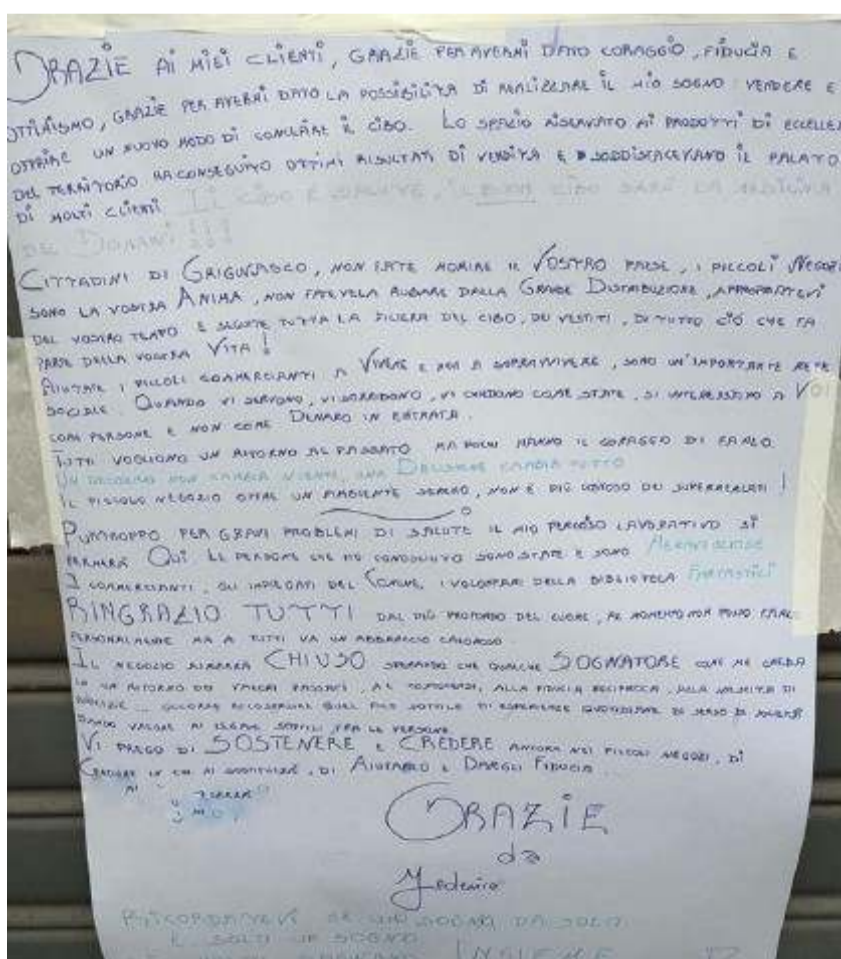 GRAZIE AI MIEI CLIENTI, GRAZIE PER AVERMI DATO CORAGGIO, FIDUCIA E
OTTIMISMO, GRAZIE PER AVERMI DATO LA POSSIBILITÀ DI REALIZZARE IL MIO SOGNO: VENDERE E
OFFRIRE UN NUOVO MODO DI COMPRARE IL CIBO. LO SPAZIO RISERVATO AI PRODOTTI DI ECCELLEN
DEL TERRITORIO HA CONSEGUITO OTTIMI RISULTATI DI VENDITA E SODDISFACEVANO IL PALATO
DI MOLTI CLIENTI IL CIBO È SALUTE, IL BUON CIBO SARÀ LA MEDICINA
DEL DOMANI!!!
CITTADINI DI GRIGNASCO, NON FATE MORIRE IL VOSTRO PAESE, I PICCOLI NEGOZI
SONO LA VOSTRA ANIMA, NON FATEVELA RUBARE DALLA GRANDE DISTRIBUZIONE, APPROPRIATEVI
DEL VOSTRO TEMPO E SEGUITE TUTTA LA FILIERA DEL CIBO, DEI VESTITI, DI TUTTO CIÒ CHE FA
PARTE DELLA VOSTRA VITA!
AIUTATE I PICCOLI COMMERCIANTI A VIVERE E NON A SOPRAVVIVERE, SONO UN'IMPORTANTE RETE
SOCIALE. QUANDO VI SERVONO, VI SORRIDONO, VI CHIEDONO COME STATE, SI INTERESSANO A VOI
COME PERSONE E NON COME DENARO IN ENTRATA.
TUTTI VOGLIONO UN RITORNO AL PASSATO MA POCHI HANNO IL CORAGGIO DI FARLO
UN NON CAMBIA NIENTE, UNA DECISIONE CAMBIA TUTTO
IL PICCOLO NEGOZIO OFFRE UN AMBIENTE SERENO, NON È PIÙ COMODO DEI SUPERMERCATI!
PURTROPPO PER GRAVI PROBLEMI DI SALUTE IL MIO PERCORSO LAVORATIVO SI
FERMERÀ QUI. LE PERSONE CHE HO CONOSCIUTO SONO STATE E SONO MERAVIGLIOSE
I COMMERCIANTI, GLI IMPIEGATI DEL COMUNE, I VOLONTARI DELLA BIBLIOTECA FANTASTICI
RINGRAZIO TUTTI DAL PIÙ PROFONDO DEL CUORE, AL MOMENTO NON POSSO FARLO
PERSONALMENTE MA A TUTTI VA UN ABBRACCIO CALOROSO
IL NEGOZIO RIMARRÀ CHIUSO SPERANDO CHE QUALCHE SOGNATORE COME ME CREDA
IN UN RITORNO DEI VALORI PASSATI, ALLA FIDUCIA RECIPROCA, ALLA DI
QUEL FILO SOTTILE DI QUOTIDIANE DI SENSO DI
DANDO VALORE AI LEGAMI SOTTILI TRA LE PERSONE
VI PREGO DI SOSTENERE E CREDERE ANCORA NEI PICCOLI NEGOZI, DI
CREDERE IN CHI MI SOSTITUIRÀ, DI AIUTARLO E DARGLI FIDUCIA
GRAZIE
da
Federica
RICORDATEVI SE UNO SOGNA DA SOLO
È SOLO UN SOGNO
INSIEME